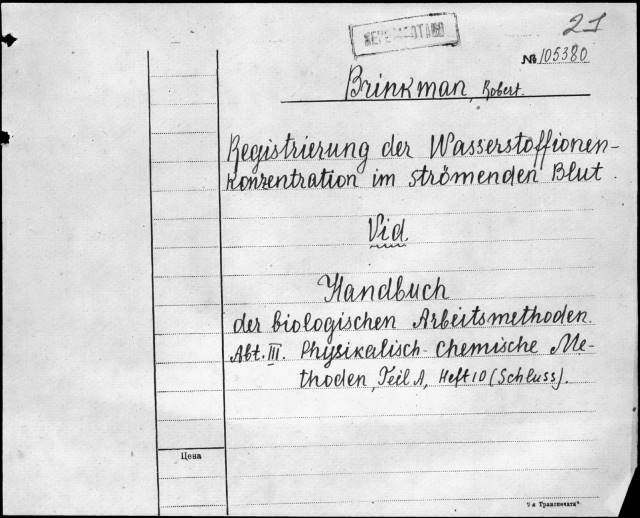 21
№ 105380
Brinkman, Robert.
Registrierung der Wasserstoffionen-
konzentration im strömenden Blut.
Vid.
Handbuch
der biologischen Arbeitsmethoden.
Abt. III. Physikalisch-chemische Me-
thoden, Teil A, Heft 10 (Schluss).
Цена